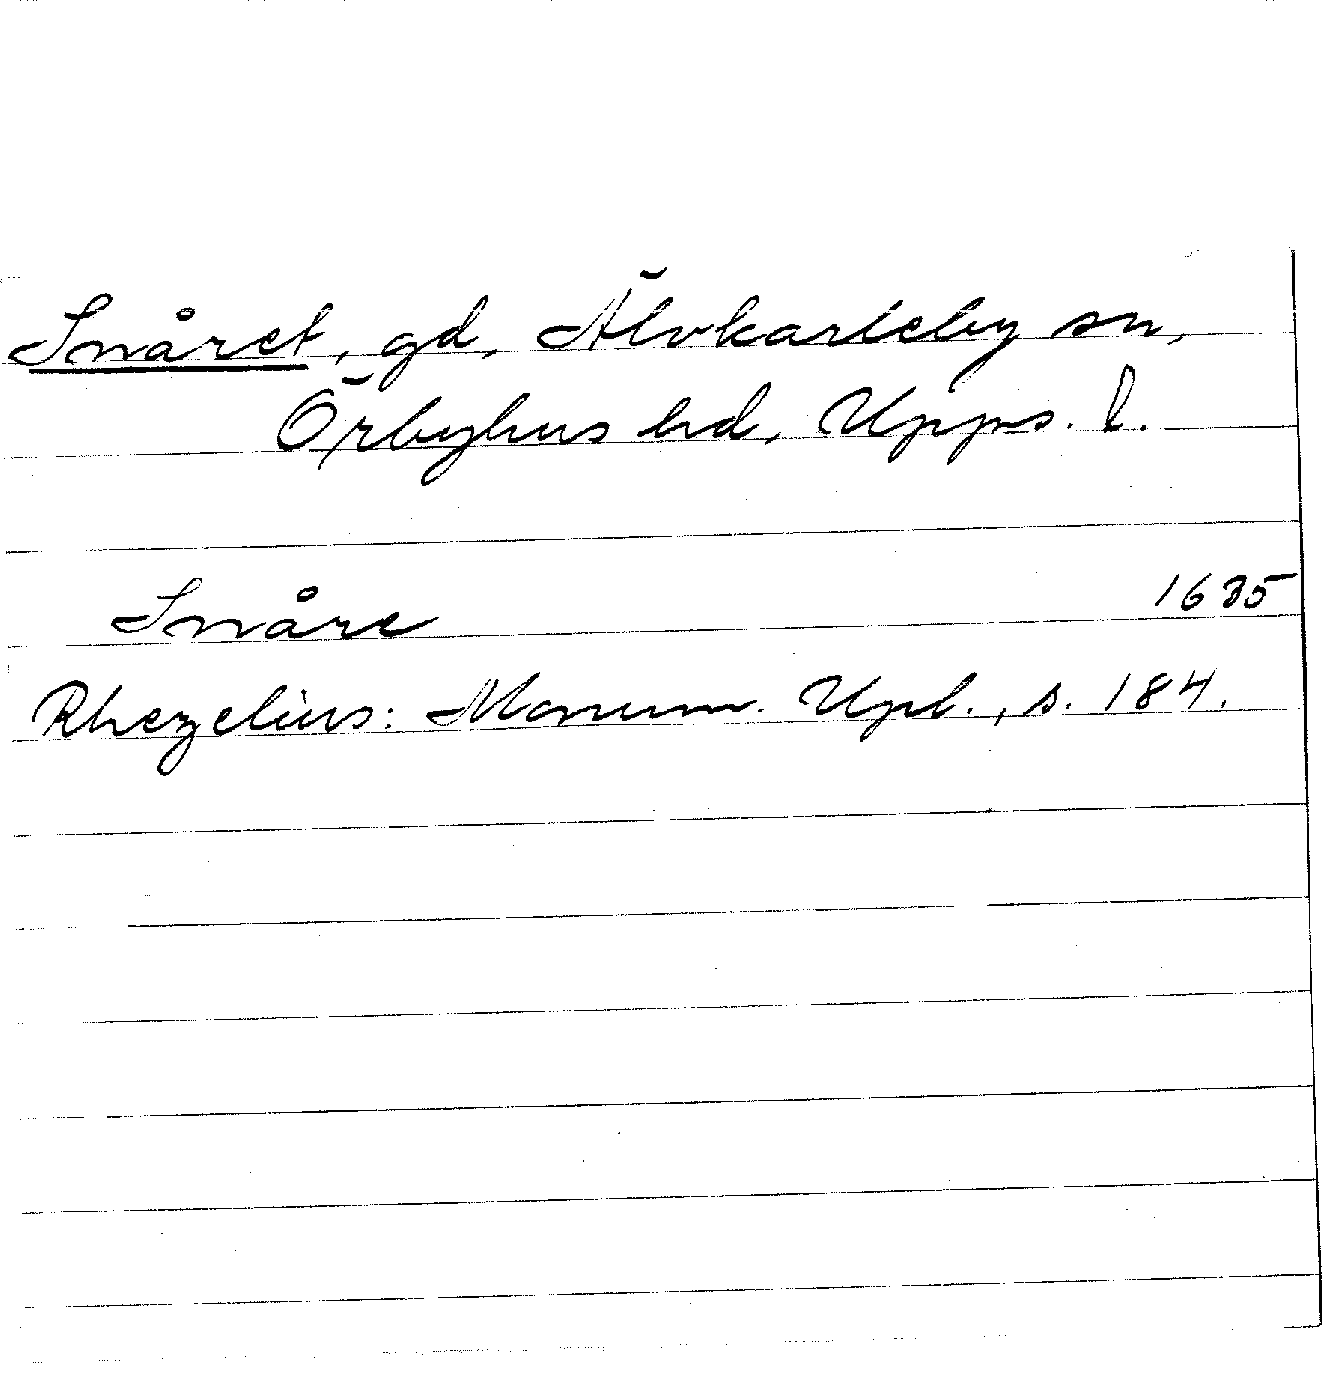 Snåret, gd, Älvkarleby sn,
Örbyhus hd, Upps. l.
Snåre 1635
Rhezelius: Monum. Upl., s. 184.